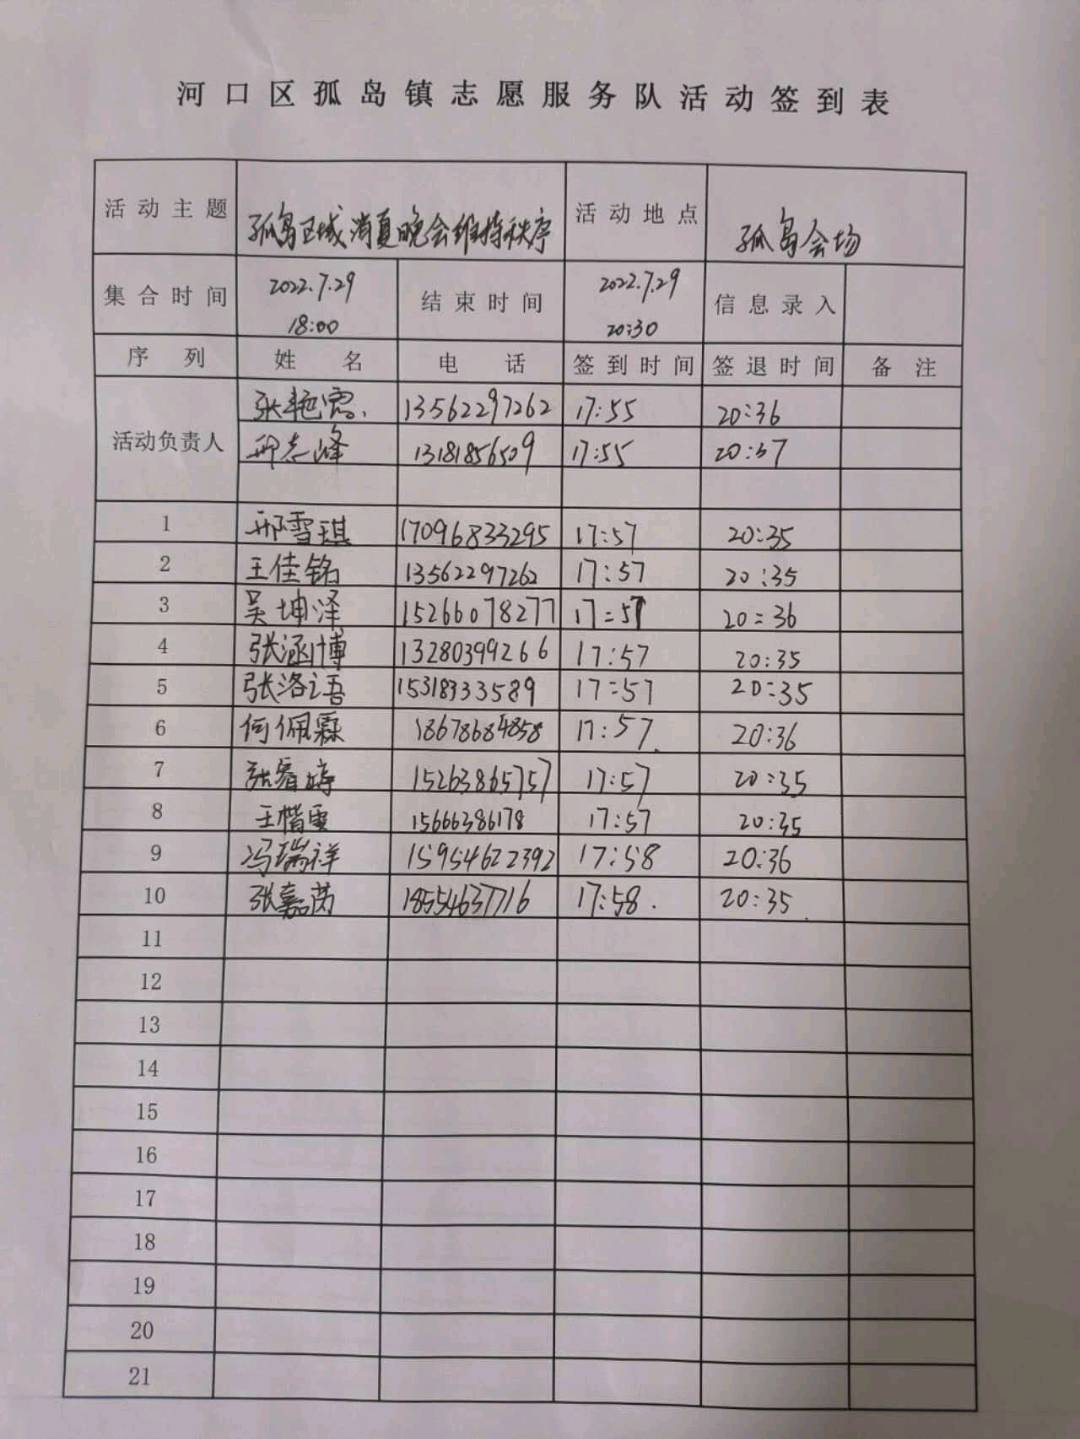 河口区孤岛镇志愿服务队活动签到表
活动主题 孤岛区域消夏晚会维持秩序 活动地点 孤岛会场
集合时间 2022.7.29 18:00 结束时间 2022.7.29 20:30 信息录入
序列 姓名 电话 签到时间 签退时间 备注
活动负责人
张艳霞 13562297262 17:55 20:36
邢志峰 13181856509 17:55 20:37
1 邢雪琪 17096833295 17:57 20:35
2 王佳铭 13562297262 17:57 20:35
3 吴坤泽 15266078277 17:57 20:36
4 张涵博 13280399266 17:57 20:35
5 张洛语 15318333589 17:57 20:35
6 何佩霖 18678684858 17:57 20:36
7 张睿婷 15263865757 17:57 20:35
8 王楷雯 15666386178 17:57 20:35
9 冯瑞祥 15954622392 17:58 20:36
10 张嘉芮 18554637716 17:58. 20:35
11
12
13
14
15
16
17
18
19
20
21